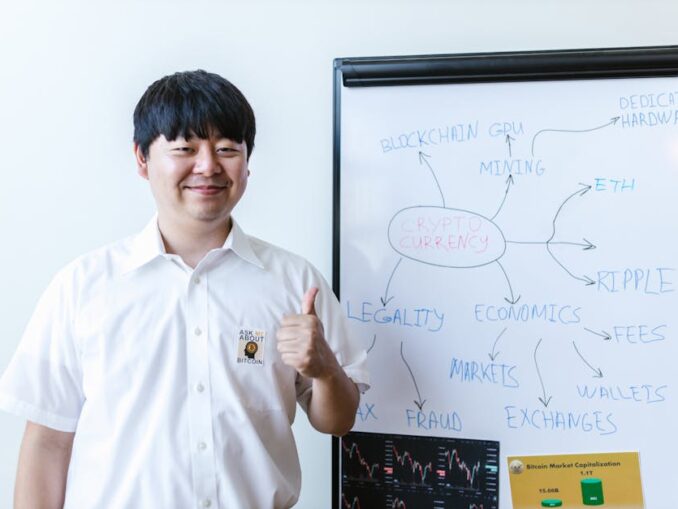 DEDICAT
HARDWA
BLOCKCHAIN
GPU
MINING
ETH
CRYPTO
CURRENCY
RIPPLE
LEGALITY
ECONOMICS
FEES
MARKETS
WALLETS
AX
FRAUD
EXCHANGES
ASK ME
ABOUT
BITCOIN
Bitcoin Market Capitalization
1.1T
15.66B